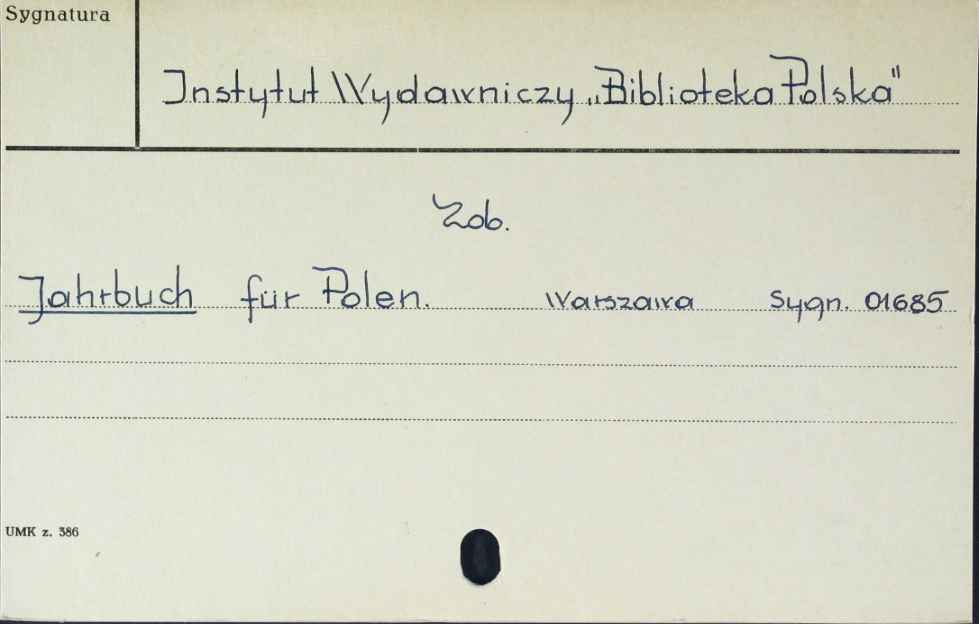 Sygnatura
Instytut Wydawniczy „Biblioteka Polska"
Zob.
Jahrbuch für Polen. Warszawa Sygn. 01685
UMK z. 386